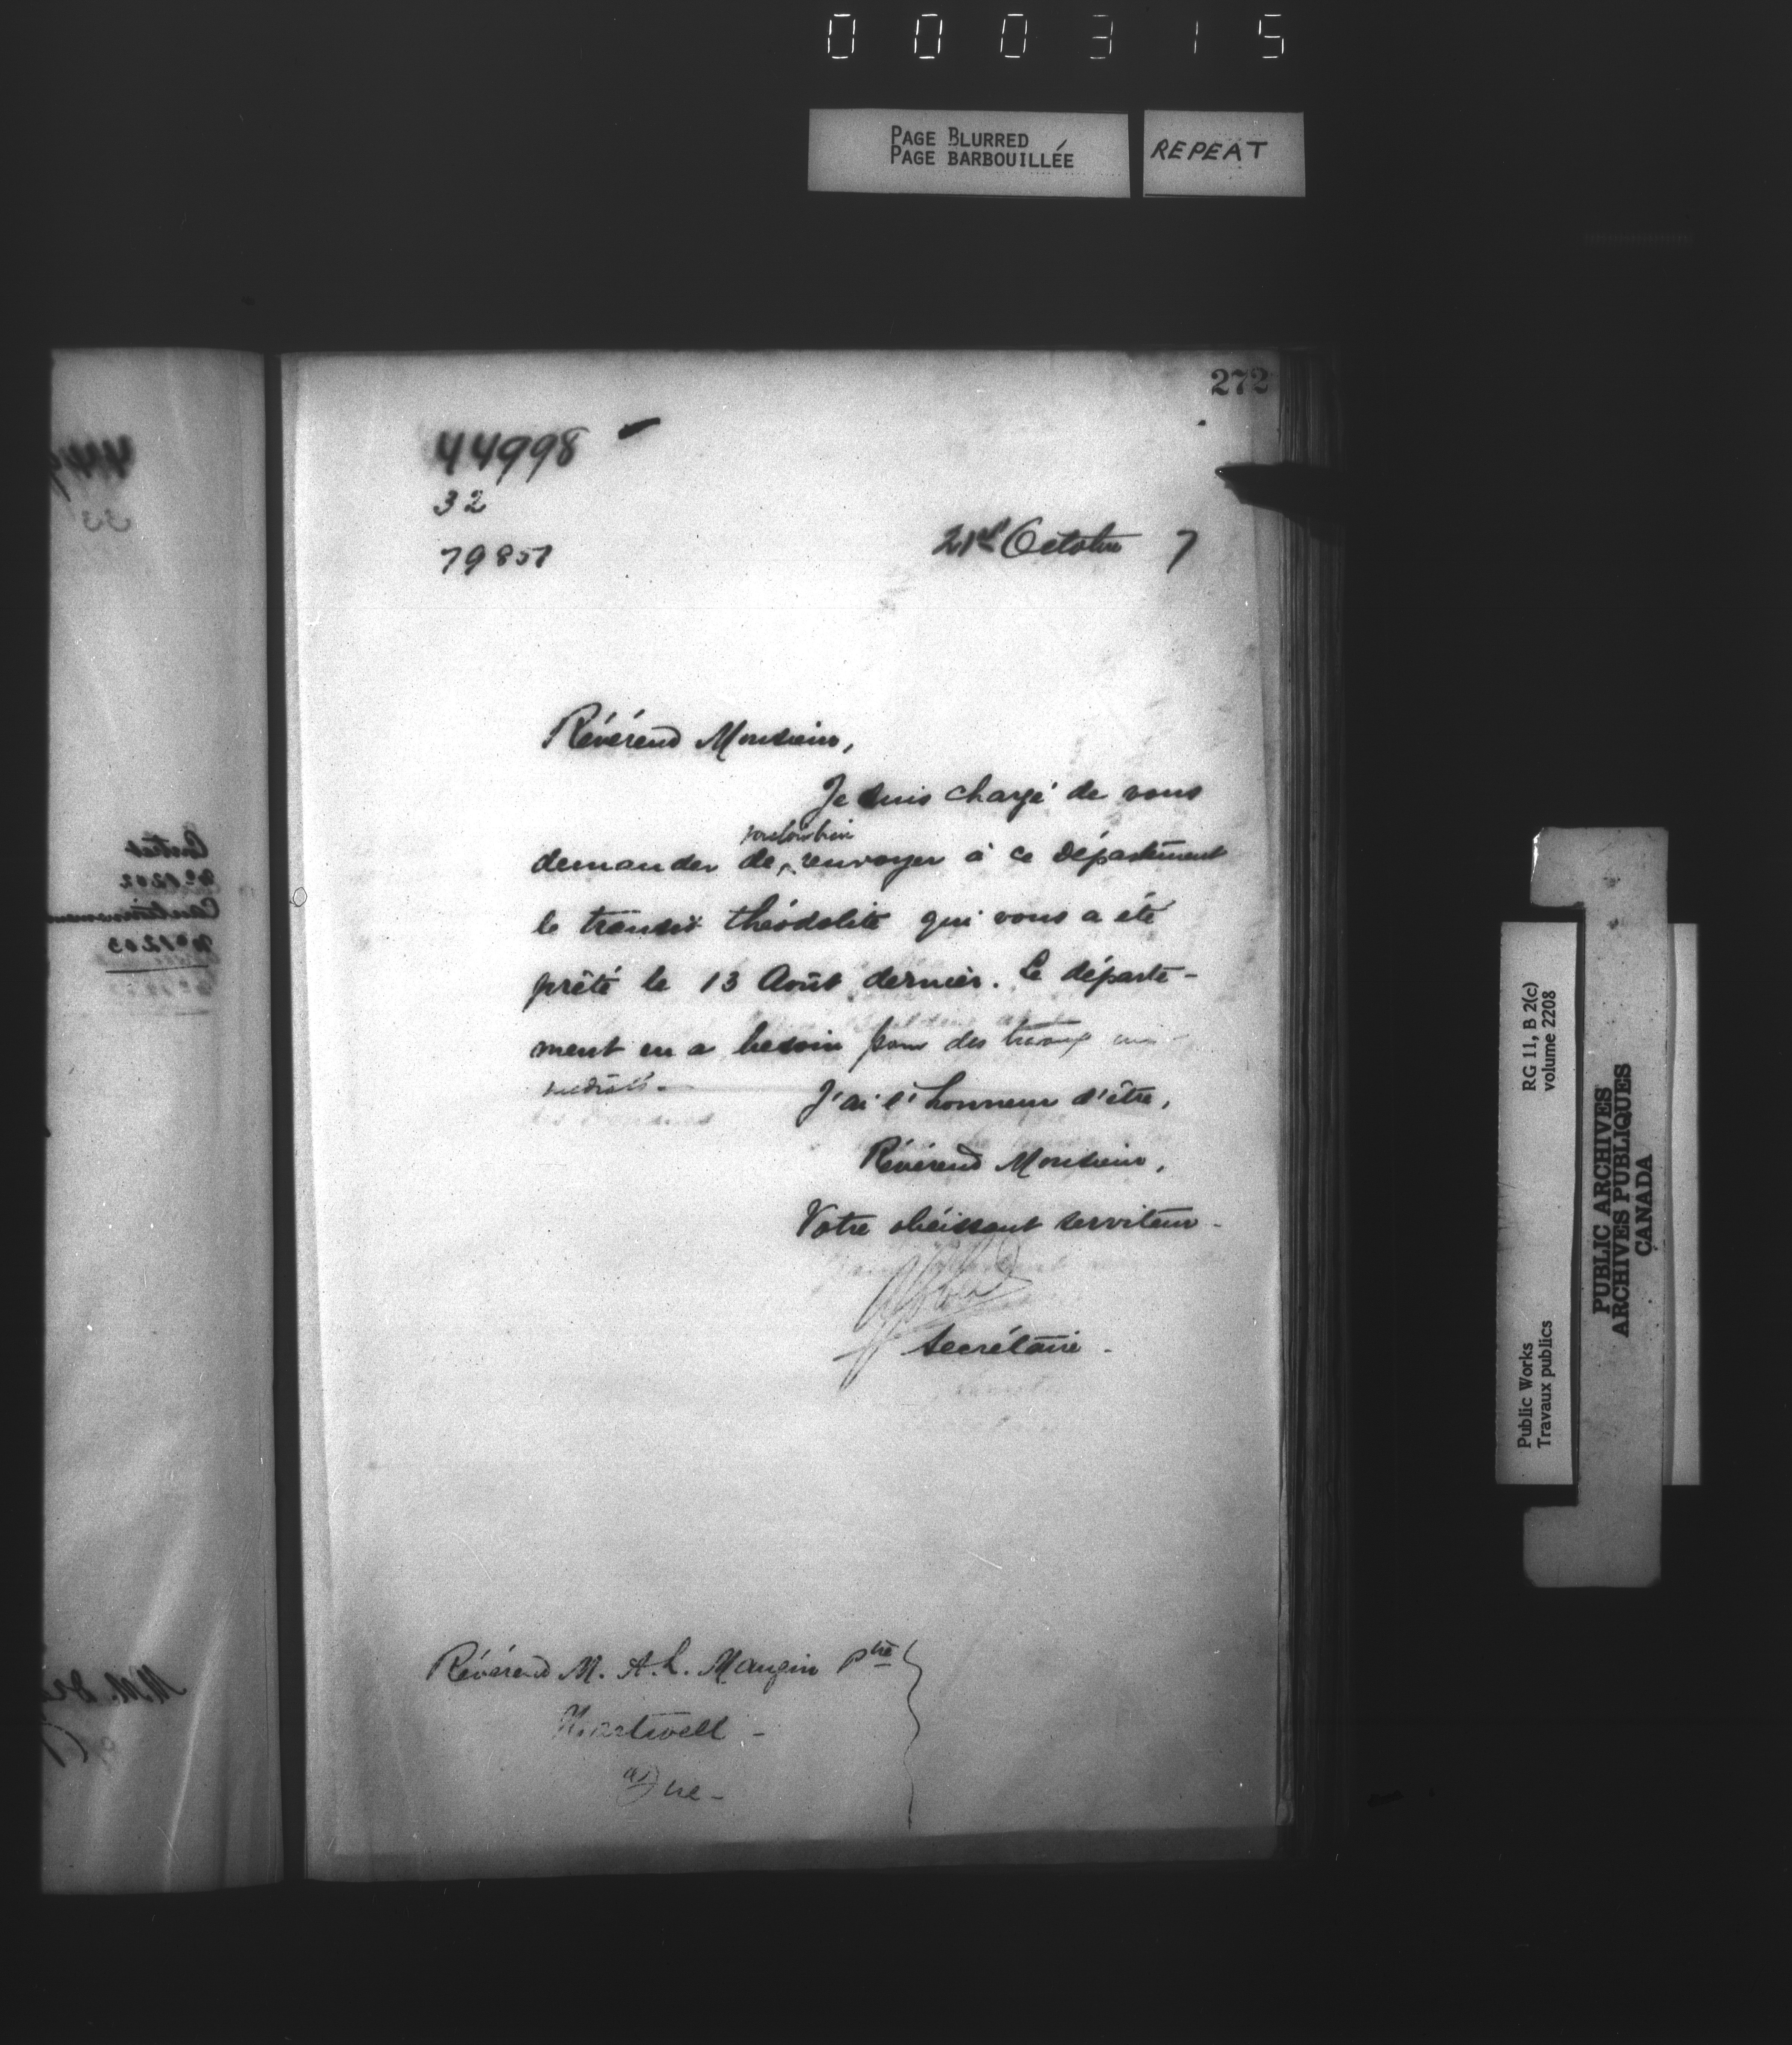 0 0 0 3 1 5
PAGE BLURRED
PAGE BARBOUILLÉE
REPEAT
272
44998
32
79857
21st Octobre 7
Révérend Monsieur,
Je suis chargé de vous
vouloir bien
demander de renvoyer à ce Département
le transit théodolite qui vous a été
prêté le 13 Août dernier. Le départe-
ment en a besoin pour des travaux im-
médiats.
J'ai l'honneur d'être,
Révérend Monsieur,
Votre obéissant serviteur
Secrétaire
Révérend M. A. L. Mangin Ptre
Hartwell
Que
RG 11, B 2(c)
volume 2208
Public Works
Travaux publics
PUBLIC ARCHIVES
ARCHIVES PUBLIQUES
CANADA